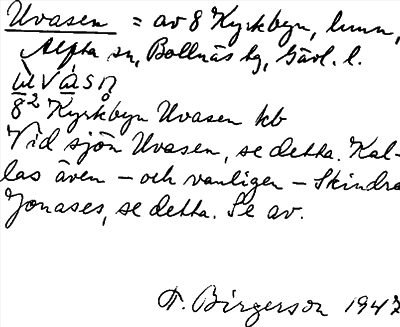 Uvasen = av 8 Kyrkbyn, hmn,
Alfta sn, Bollnäs tg, Gävl. l.
ùvàsn
8² Kyrkbyn Uvasen kb
Vid sjön Uvasen, se detta. Kal-
las även – och vanligen – Skindra
Jonases, se detta. Se av.
F. Birgerson 1947